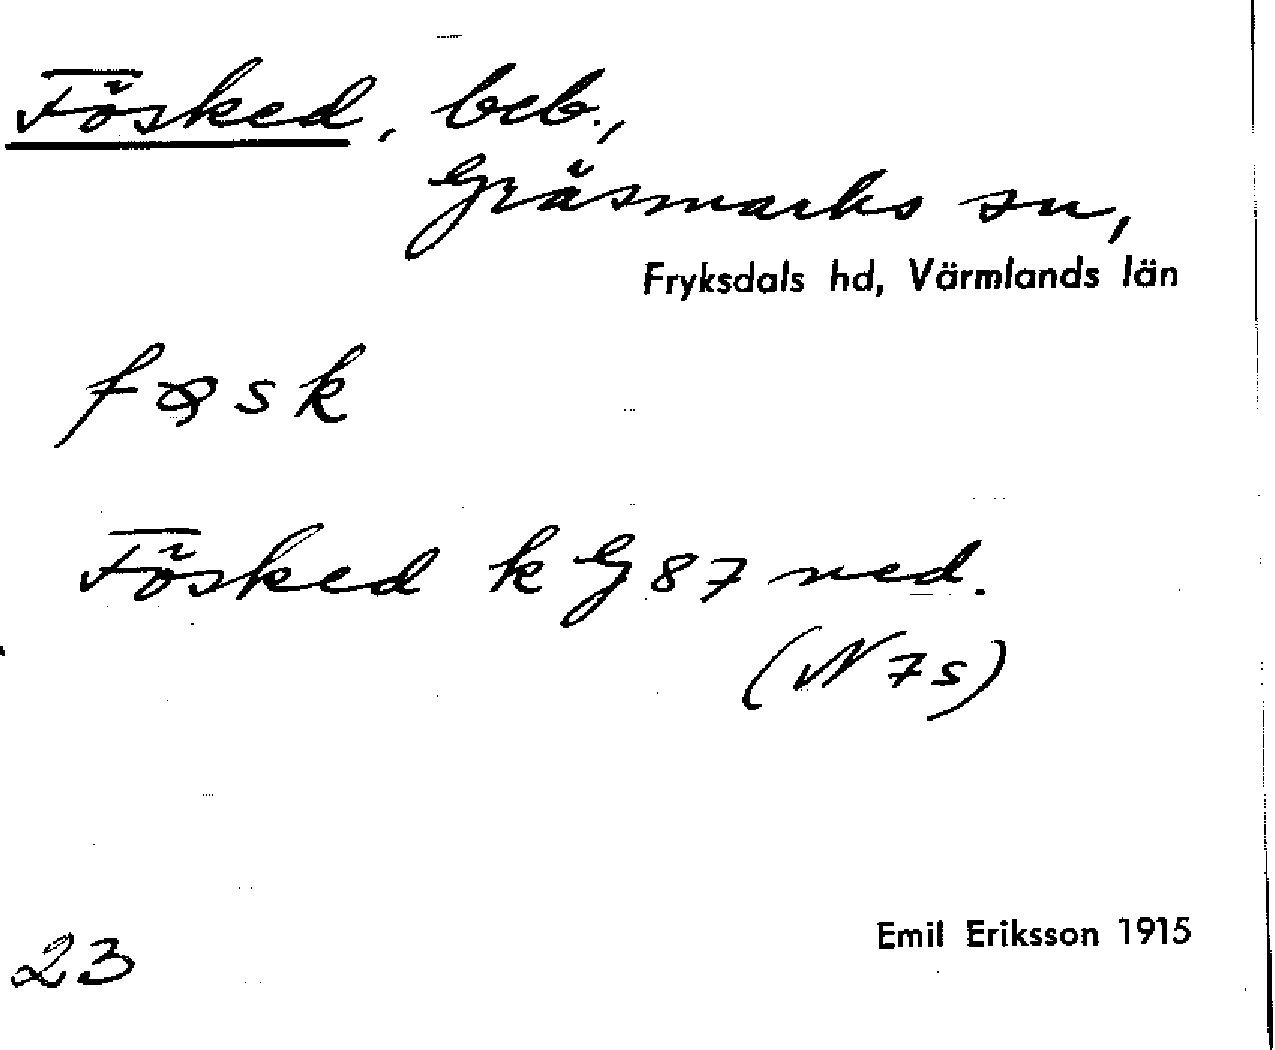 Fösked, beb.,
Gräsmarks sn,
Fryksdals hd, Värmlands län
Fösked k G 87 ned.
(N 7s)
Emil Eriksson 1915
23